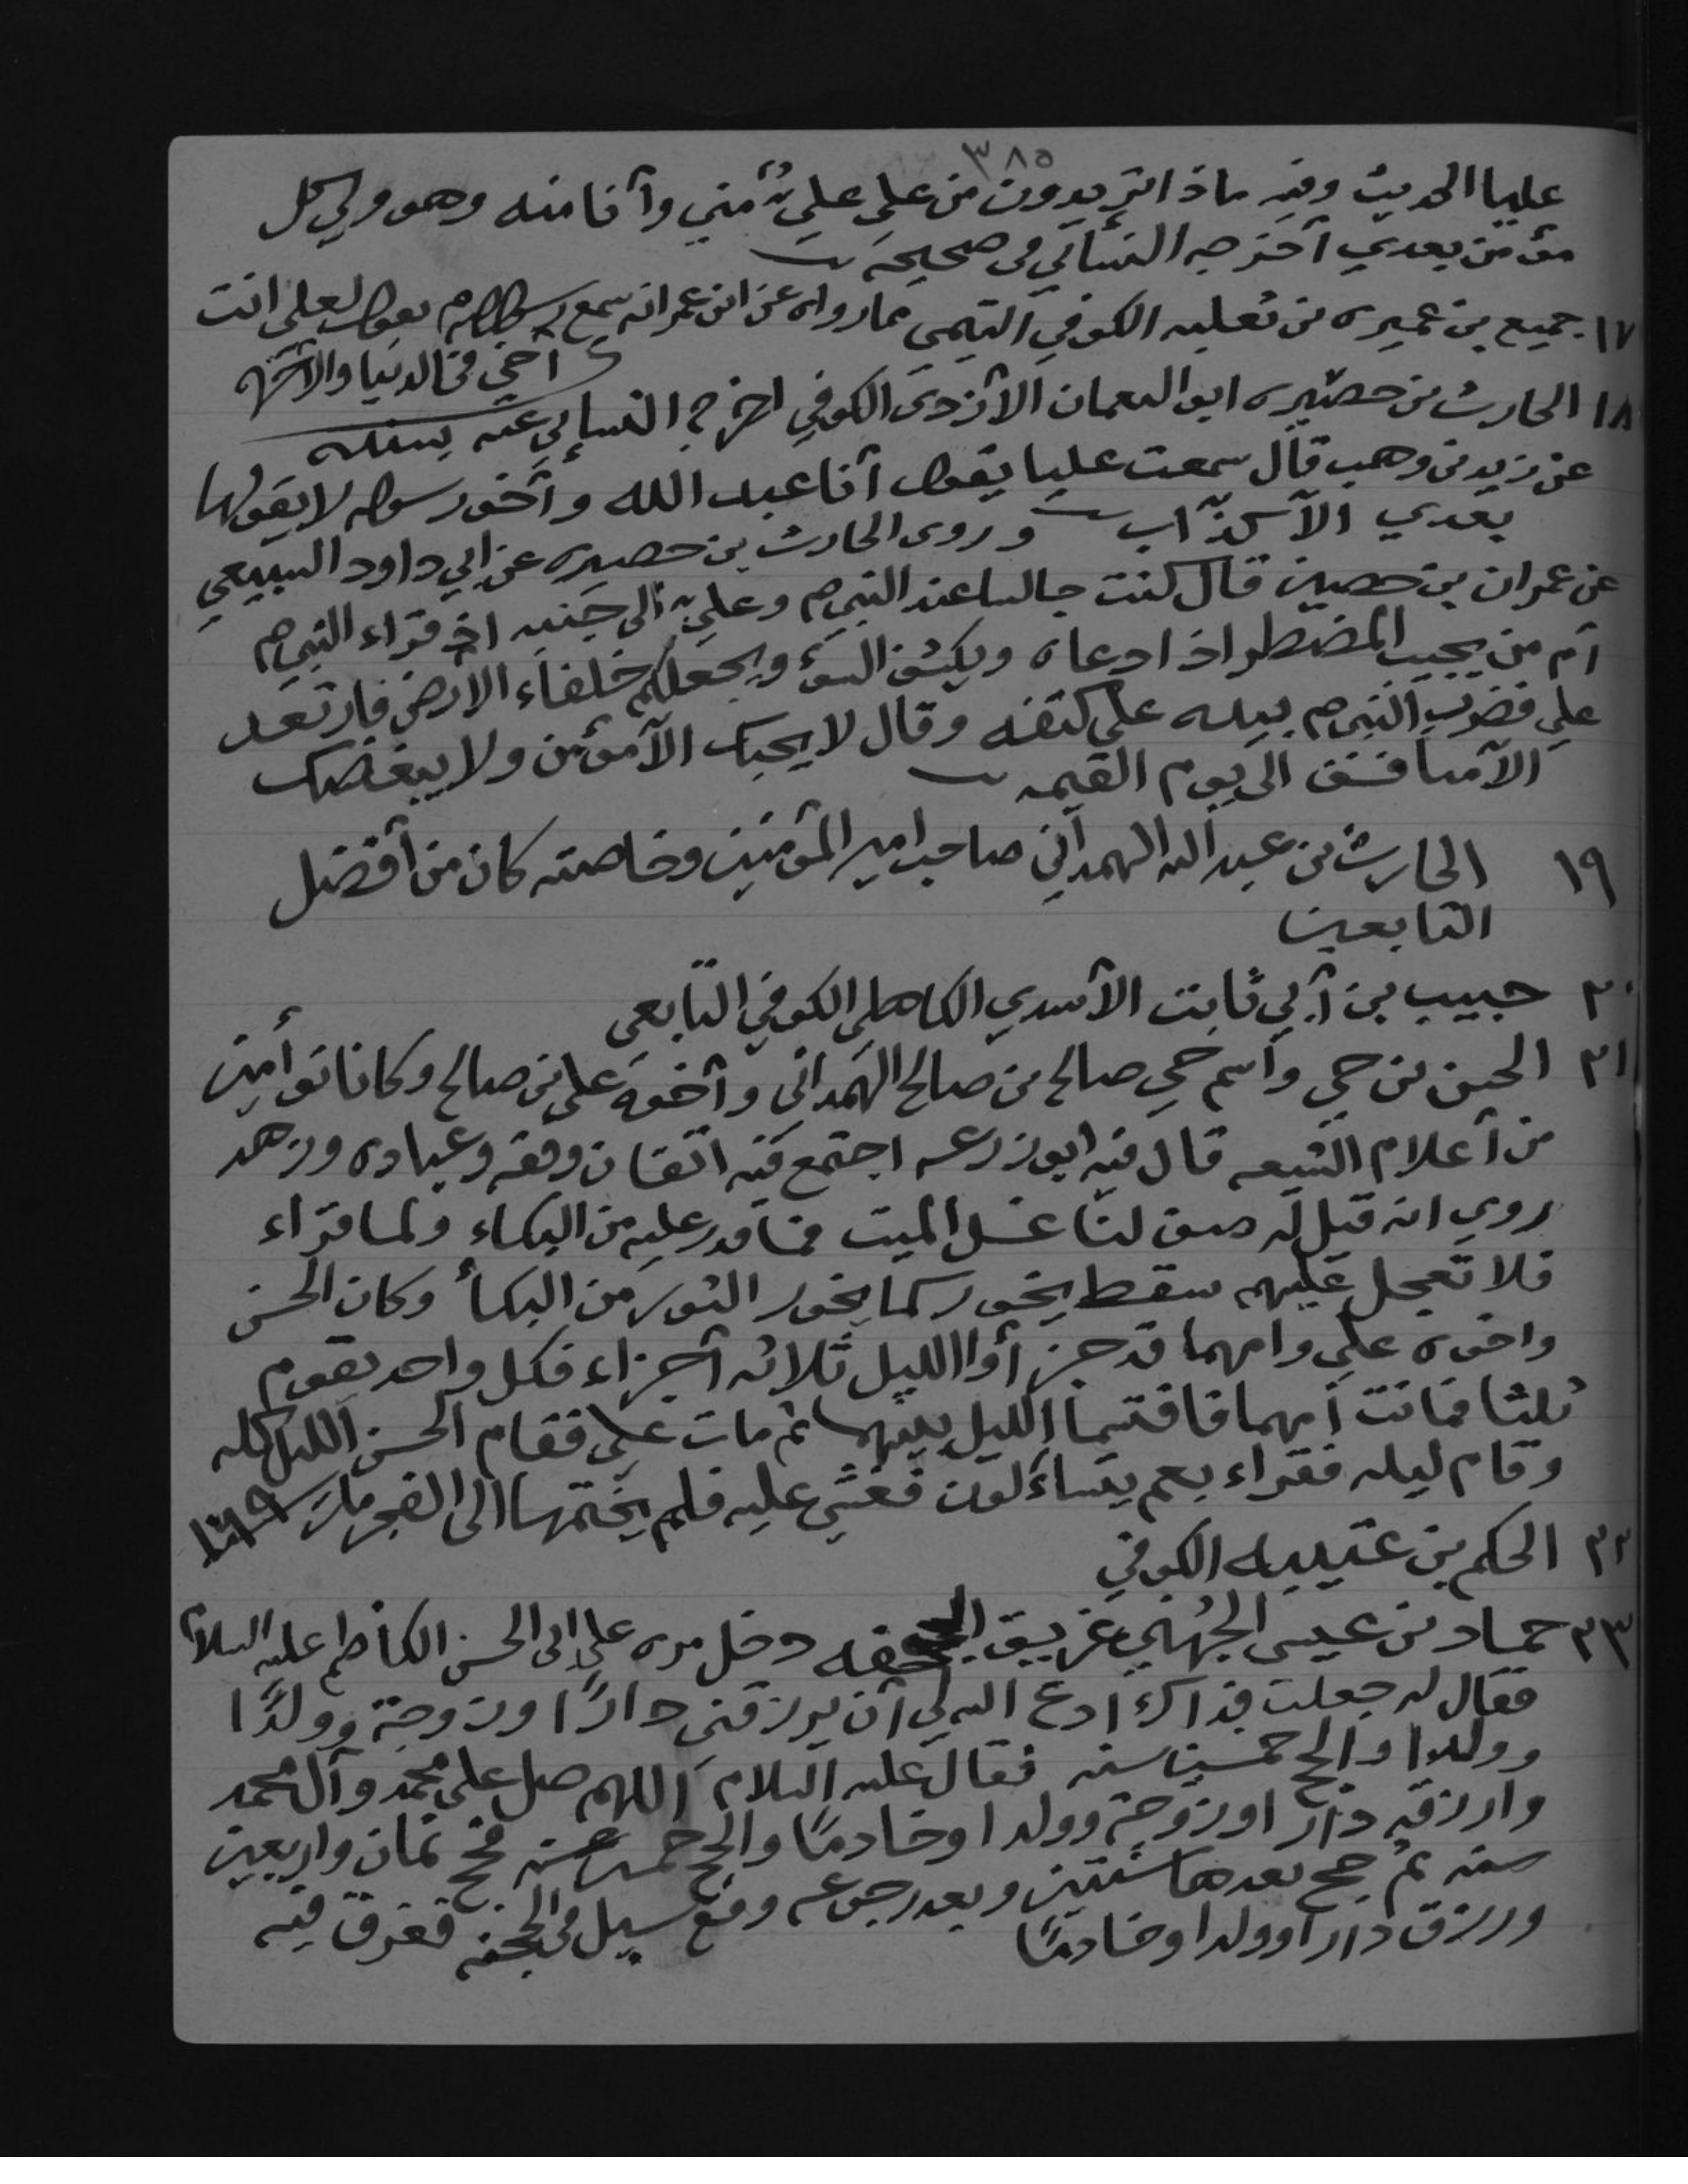 ٣٨٥
عليا الحديث وفيه ماذا تريدون من علي علي مني وأنا منه وهو ولي كل
مؤمن بعدي أخرجه النسائي في صحيحه
١٧ جميع بن عميره بن ثعلبه الكوفي التيمي مما رواه عن ابن عمر انه سمع رسول الله ص يقول لعلي انت
أخي في الدنيا والآخرة
١٨ الحارث بن حصيره ابو النعمان الأزدي الكوفي اخرج النسائي عنه بسنده
عن زيد بن وهب قال سمعت عليا يقول أنا عبد الله وأخو رسوله لا يقولها
بعدي الأ كذّاب وروى الحارث بن حصيره عن ابي داود السبيعي
عن عمران بن حصين قال كنت جالسا عند النبي ص وعلي الى جنبه اذ قراء النبي ص
أم من يجيب المضطر اذا دعاه ويكشف السوء ويجعلكم خلفاء الارض فارتعد
علي فضرب النبي ص بيده على كتفه وقال لا يحبك الأ مؤمن ولا يبغضك
الأ منافق الى يوم القيمه
١٩ الحارث بن عبد الله الهمداني صاحب امير المؤمنين وخاصته كان من أفضل
التابعين
٢٠ حبيب بن أبي ثابت الأسدي الكاهلي الكوفي التابعي
٢١ الحسن بن حي واسم حي صالح بن صالح الهمداني وأخوه علي بن صالح وكانا توأمين
من أعلام الشيعه قال فيه ابو زرعه اجتمع فيه اتقان وفقه وعباده وزهد
روي انه قيل له صف لنا غسل الميت فما قدر عليه من البكاء ولما قراء
فلا تعجل عليهم سقط يخور كما يخور الثور من البكأ وكان الحسن
واخوه علي وامهما قد جزأوا الليل ثلاثه أجزاء فكل واحد يقوم
ثلثا فماتت أمهما فاقتسما الليل بينهما ثم مات علي فقام الحسن الليل كله
وقام ليله فقراء بعم يتساءلون فغشي عليه فلم يختمها الى الفجر مات ١٦٩
٢٢ الحكم بن عتيبه الكوفي
٢٣ حماد بن عيسى الجهني غريق الجحفه دخل مره على ابى الحسن الكاظم عليه السلام
فقال له جعلت فداك ادع الله لي أن يرزقني دارًا وزوجة وولدًا
وولدا والحج خمسين سنه فقال عليه السلام اللهم صل على محمد وآل محمد
وارزقه دارا وزوجة وولدا وخادمًا والحج خمسين سنه فحج ثمان واربعين
سنه ثم حج بعدها سنتين وبعد رجوعه وقع سيل في الجحفه فغرق فيه
ورزق دارا وولدا وخادمًا